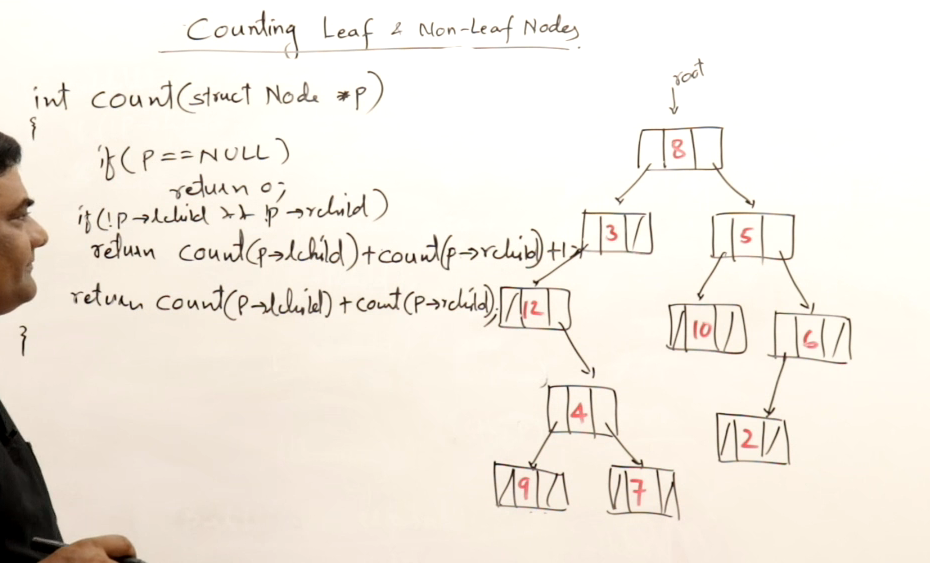 Counting Leaf & Non-Leaf Nodes
int count(struct Node *p)
{
if(P==NULL)
return 0;
if(!p→lchild && !p→rchild)
return count(p→lchild)+count(p→rchild)+1;
return count(p→lchild)+count(p→rchild);
}
root
8
3
5
12
10
6
4
2
9
7